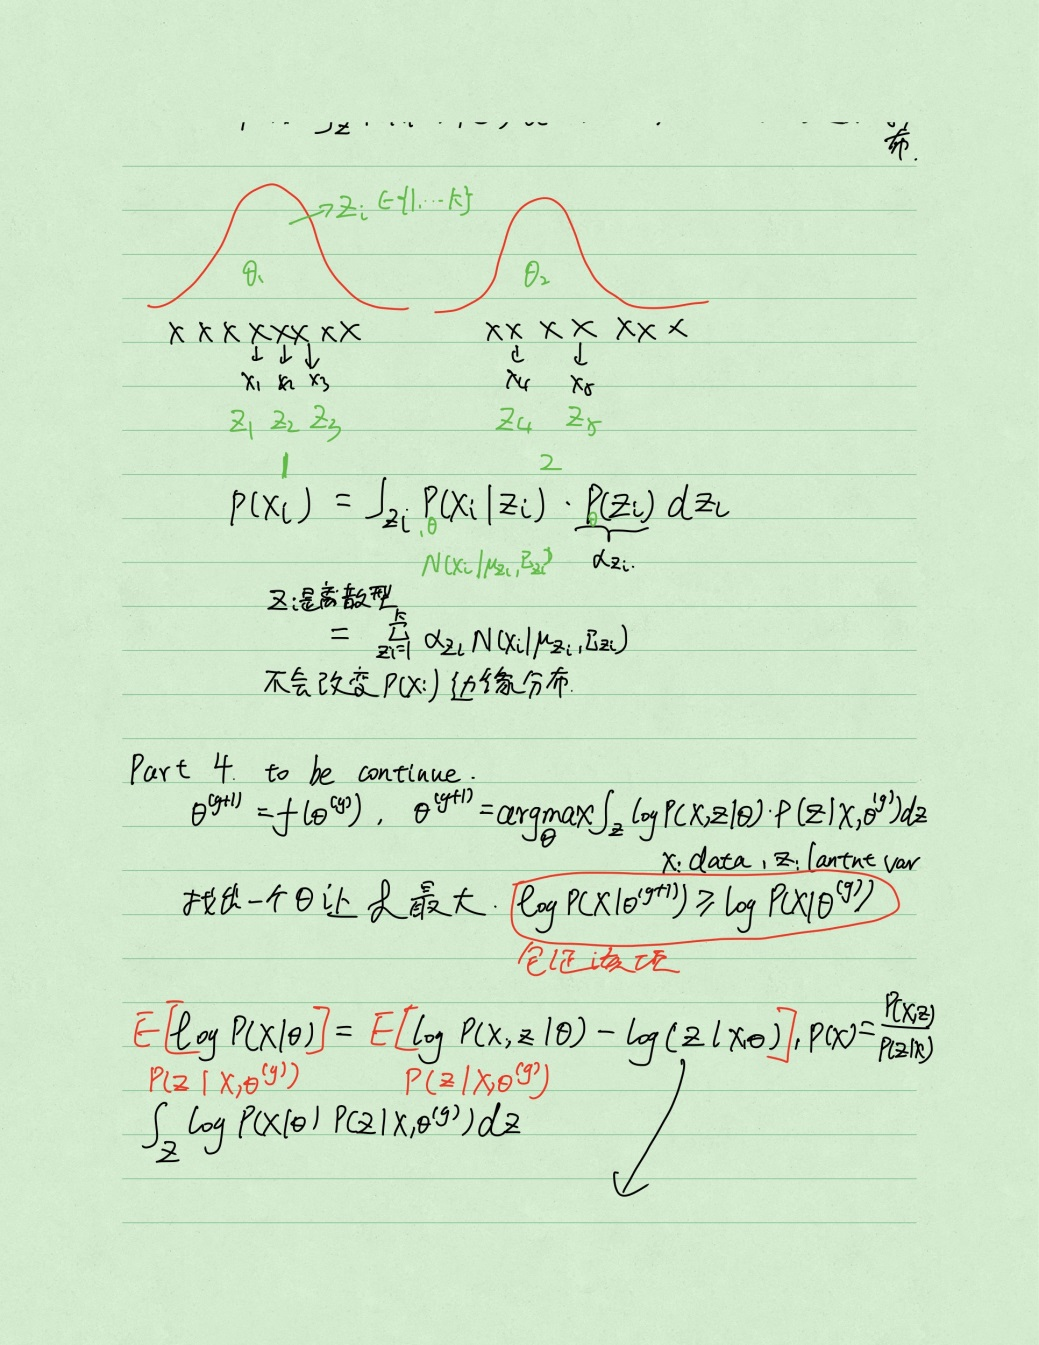 布.
→ Zᵢ ∈ {1,...k}
θ₁ θ₂
x x x x x x x x x x x x x x x
x₁ x₂ x₃ x₄ x₅
Z₁ Z₂ Z₃ Z₄ Z₅
1 2
P(xᵢ) = ∫_{zᵢ} P(xᵢ|zᵢ) · P(zᵢ) dzᵢ
,θ θ
N(xᵢ|μ_{zᵢ}, Σ_{zᵢ}) α_{zᵢ}.
Zᵢ是离散型
= Σ_{zᵢ=1}^{k} α_{zᵢ} N(xᵢ|μ_{zᵢ}, Σ_{zᵢ})
不会改变P(Xᵢ) 边缘分布.
Part 4. to be continue.
θ^{(g+1)} = f(θ^{(g)}), θ^{(g+1)} = argmax_θ ∫_z log P(X,Z|θ)·P(Z|X,θ^{(g)})dz
X: data, Z: lantnt var
找出一个θ让 ℒ 最大. log P(X|θ^{(g+1)}) ≥ log P(X|θ^{(g)})
E[log P(X|θ)] = E[log P(X,Z|θ) - log(Z|X,θ)], P(X) = P(X,Z)/P(Z|X)
P(Z|X,θ^{(g)}) P(Z|X,θ^{(g)})
∫_z log P(X|θ) P(Z|X,θ^{(g)})dz